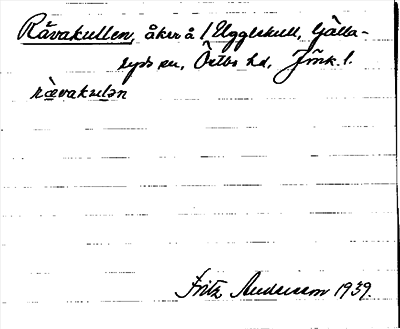 Råvakullen, åker å 1 Elggeskull, Gälla-
ryds sn, Östbo hd, Jönk. l.
rævakulən
Fritz Andersson 1939.